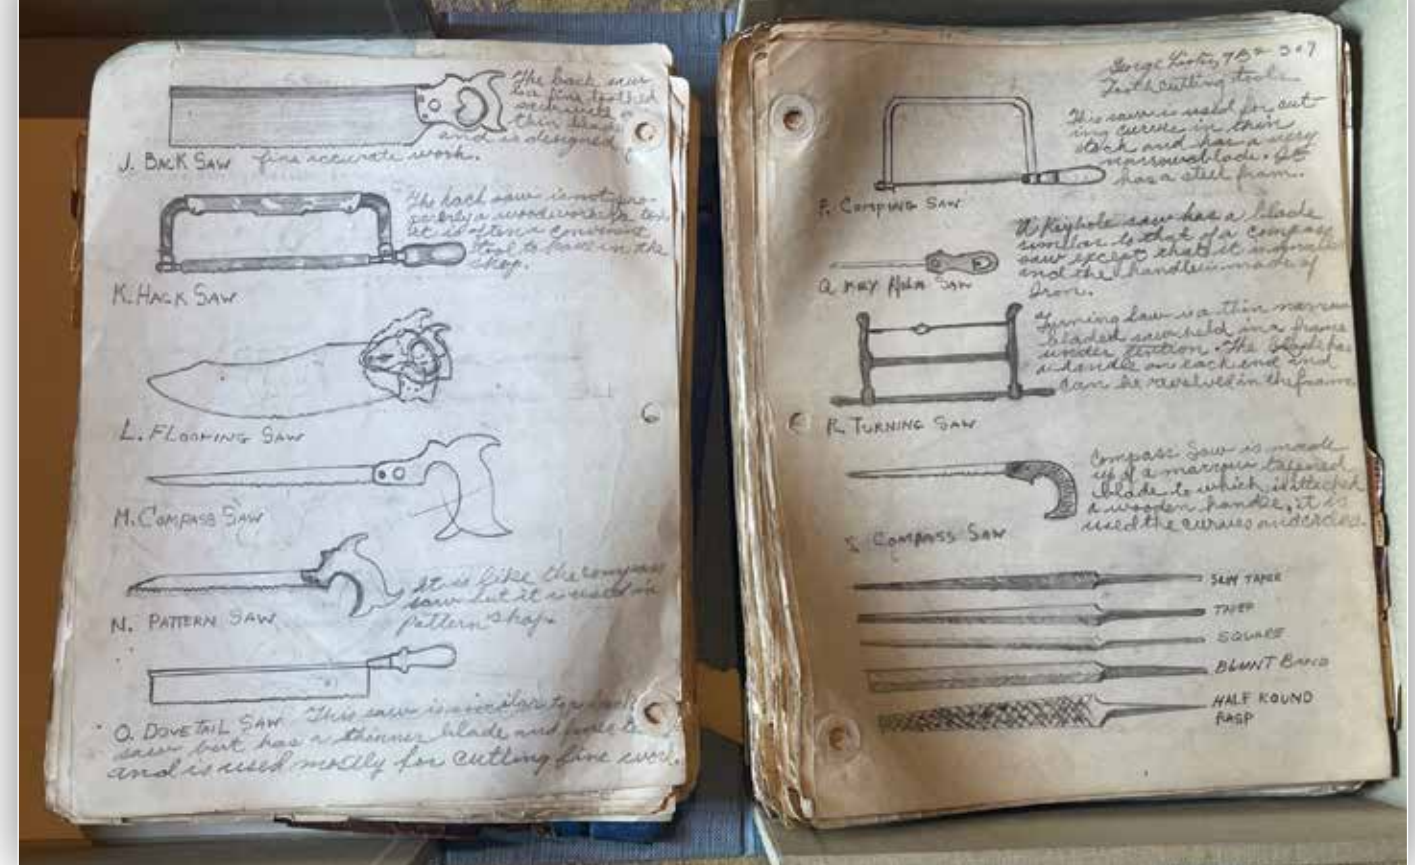 The back saw
is a fine toothed
saw with a
thin blade
and is designed
J. BACK SAW fine accurate work.
The hack saw is not pro-
perly a woodworker's tool
it is often a convenient
tool to have in the
shop.
K. HACK SAW
L. FLOORING SAW
M. COMPASS SAW
It is like the compass
saw but it is used in
pattern shop.
N. PATTERN SAW
O. DOVETAIL SAW This saw is similar to
saw but has a thinner blade and
and is used mostly for cutting fine work.
6
George
Tooth cutting tools
This saw is used for cut-
ing curves in thin
stock and has a very
narrow blade. It
has a steel fram.
P. COMPING SAW
A Keyhole saw has a blade
similar to that of a compass
saw except that it is
and the handle is made of
Iron.
Q KEY HOLE SAW
Turning Saw is a thin narrow
bladed saw held in a frame
under tention. The has
a handle on each end and
can be revolved in the frame
R. TURNING SAW
Compass Saw is made
up of a tapered
blade to which is attached
a wooden handle, it is
used the curves and circles.
S. COMPASS SAW
SLIM TAPER
TAPER
SQUARE
BLUNT BAND
HALF ROUND
RASP